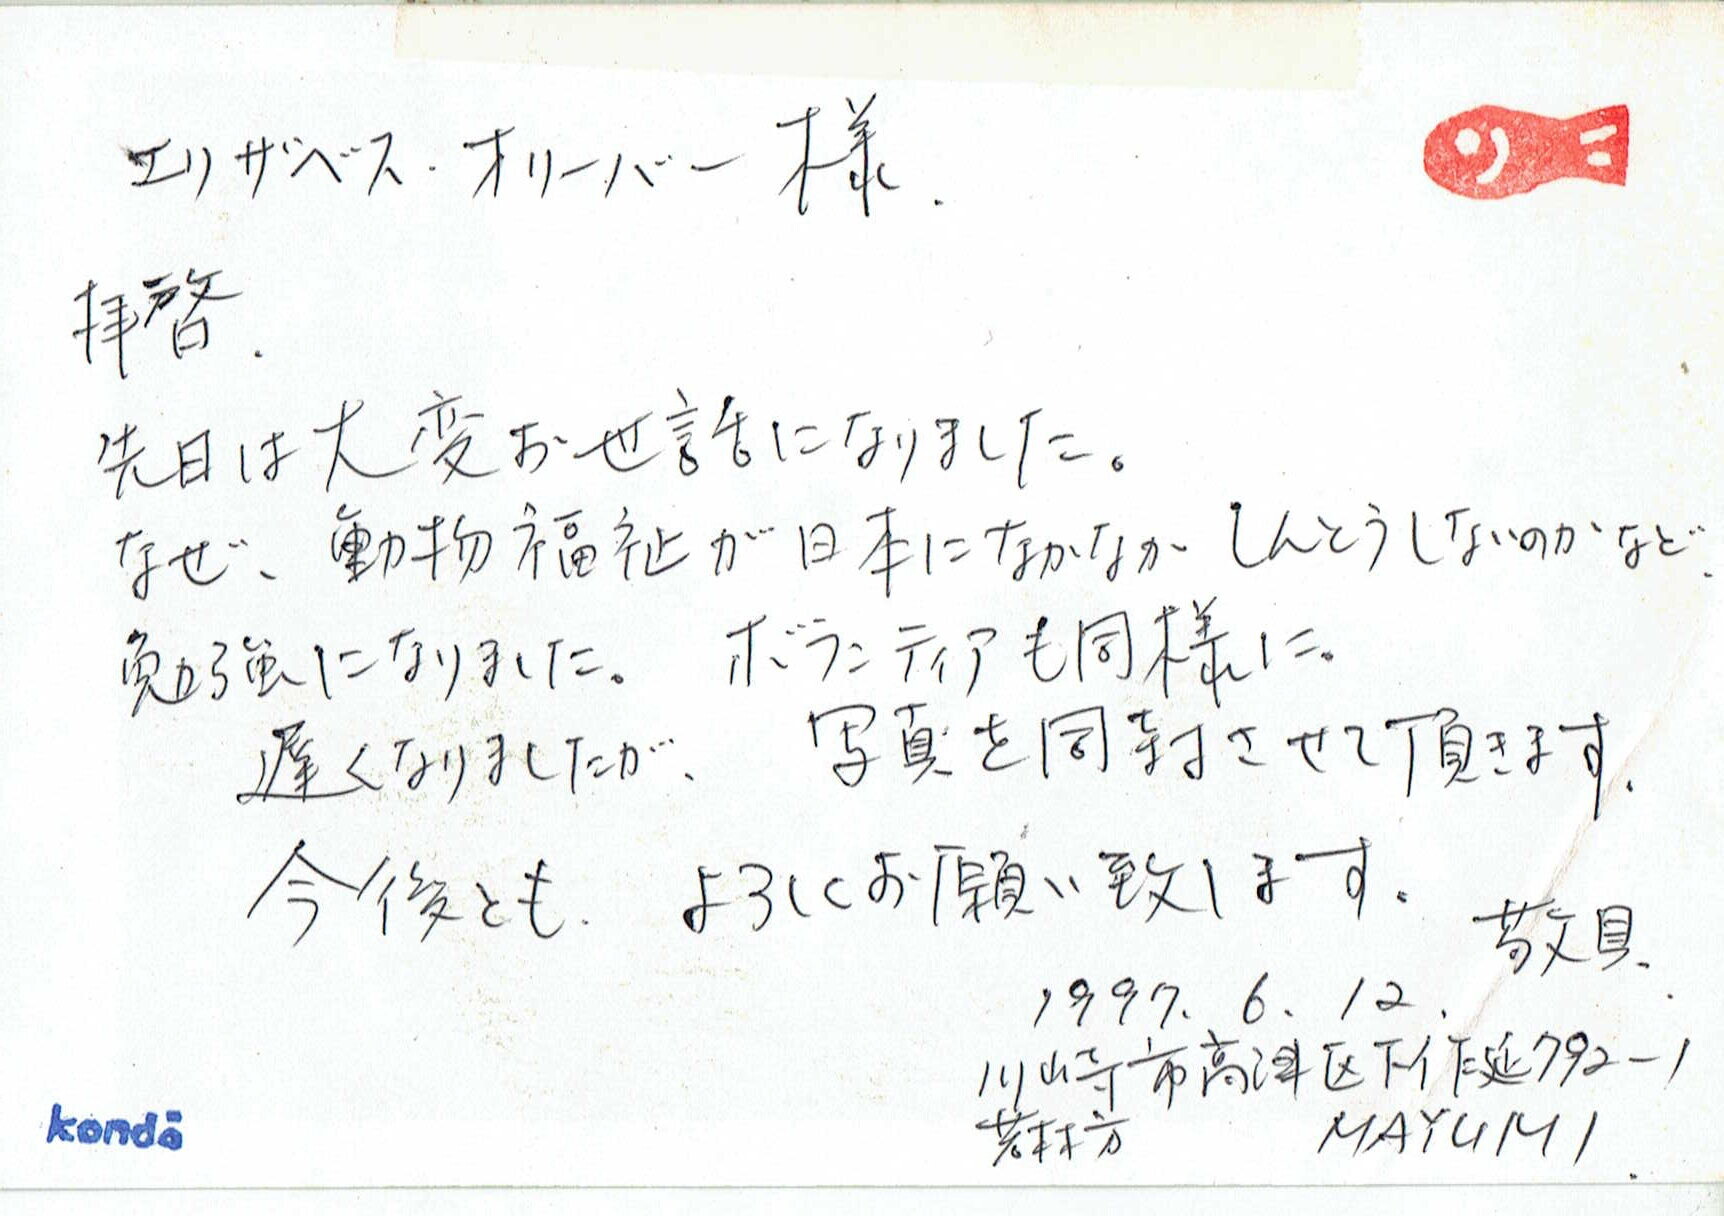 エリザベス・オリーバー様.
拝啓.
先日は大変お世話になりました。
なぜ、動物福祉が日本になかなかしんとうしないのかなど、
勉強になりました。 ボランティアも同様に。
遅くなりましたが、 写真を同封させて頂きます.
今後とも、よろしくお願い致します.
敬具.
1997. 6. 12.
川崎市高津区下作延792-1
若林方 MAYUMI.
kondō